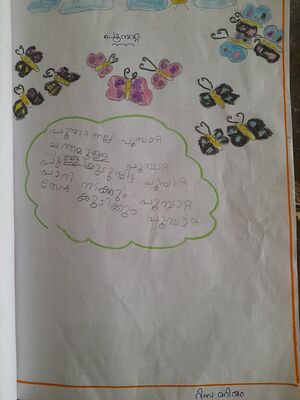 പൂമ്പാറ്റ
പൂമ്പാറ്റ നല്ല പൂമ്പാറ്റ
ചന്തമുള്ള പൂമ്പാറ്റ
പൂമ്പാറ്റ
പാറി നടക്കും പൂമ്പാറ്റ
തേൻ കുടിക്കും പൂമ്പാറ്റ
റിസ മറിയം